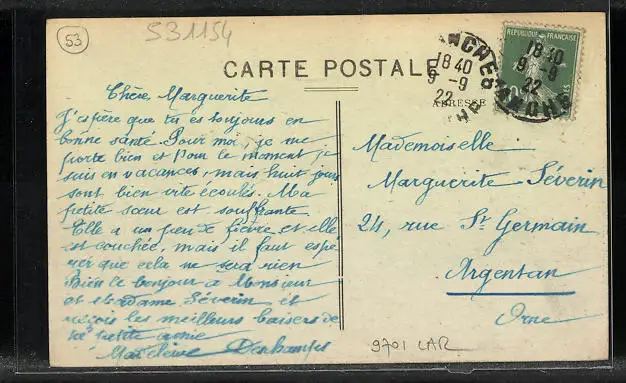 53
S31154
CARTE POSTALE
ADRESSE
REPUBLIQUE FRANÇAISE
18 40
9 - 9
22
18 40
9 - 9
22
Chère Marguerite
J'espère que tu es toujours en
bonne santé. Pour moi, je me
porte bien et Pour le moment je
suis en vacances, mais huit jours
sont bien vite écoulés. Ma
petite sœur est souffrante.
Elle a un peu de fièvre et elle
est couchée, mais il faut espé
rer que cela ne sera rien
Bien le bonjour à Monsieur
et Madame Séverin et
reçois les meilleurs baisers de
ta petite amie
Madeleine Deshamps
Mademoiselle
Marguerite Séverin
24, rue St Germain
Argentan
Orne
9701 LAR